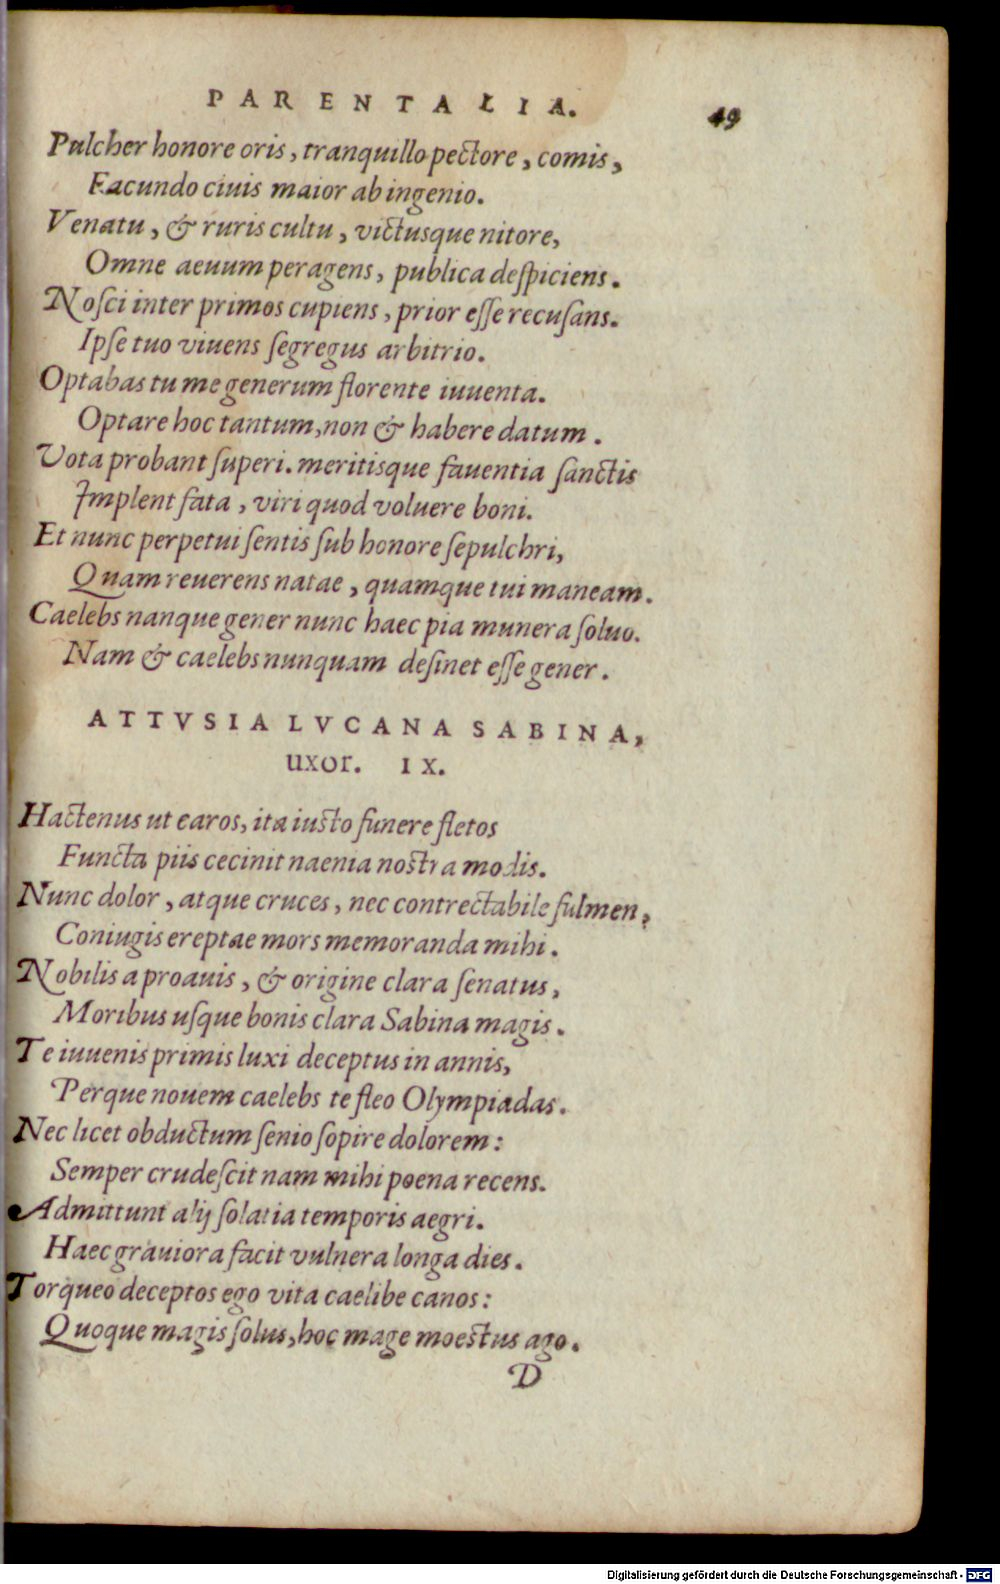 PARENTALIA. 49
Pulcher honore oris, tranquillo pectore, comis,
Facundo ciuis maior ab ingenio.
Venatu, & ruris cultu, victusque nitore,
Omne aeuum peragens, publica despiciens.
Nosci inter primos cupiens, prior esse recusans.
Ipse tuo viuens segregus arbitrio.
Optabas tu me generum florente iuuenta.
Optare hoc tantum, non & habere datum.
Vota probant superi. meritisque fauentia sanctis
Implent fata, viri quod voluere boni.
Et nunc perpetui sentis sub honore sepulchri,
Quam reuerens natae, quamque tui maneam.
Caelebs nanque gener nunc haec pia munera soluo.
Nam & caelebs nunquam desinet esse gener.
ATTVSIA LVCANA SABINA,
uxor. IX.
Hactenus ut earos, ita iusto funere fletos
Functa piis cecinit naenia nostra modis.
Nunc dolor, atque cruces, nec contrectabile fulmen,
Coniugis ereptae mors memoranda mihi.
Nobilis a proauis, & origine clara senatus,
Moribus usque bonis clara Sabina magis.
Te iuuenis primis luxi deceptus in annis,
Perque nouem caelebs te fleo Olympiadas.
Nec licet obductum senio sopire dolorem:
Semper crudescit nam mihi poena recens.
Admittunt alij solatia temporis aegri.
Haec grauiora facit vulnera longa dies.
Torqueo deceptos ego vita caelibe canos:
Quoque magis solus, hoc mage moestus ago.
D
Digitalisierung gefördert durch die Deutsche Forschungsgemeinschaft - DFG